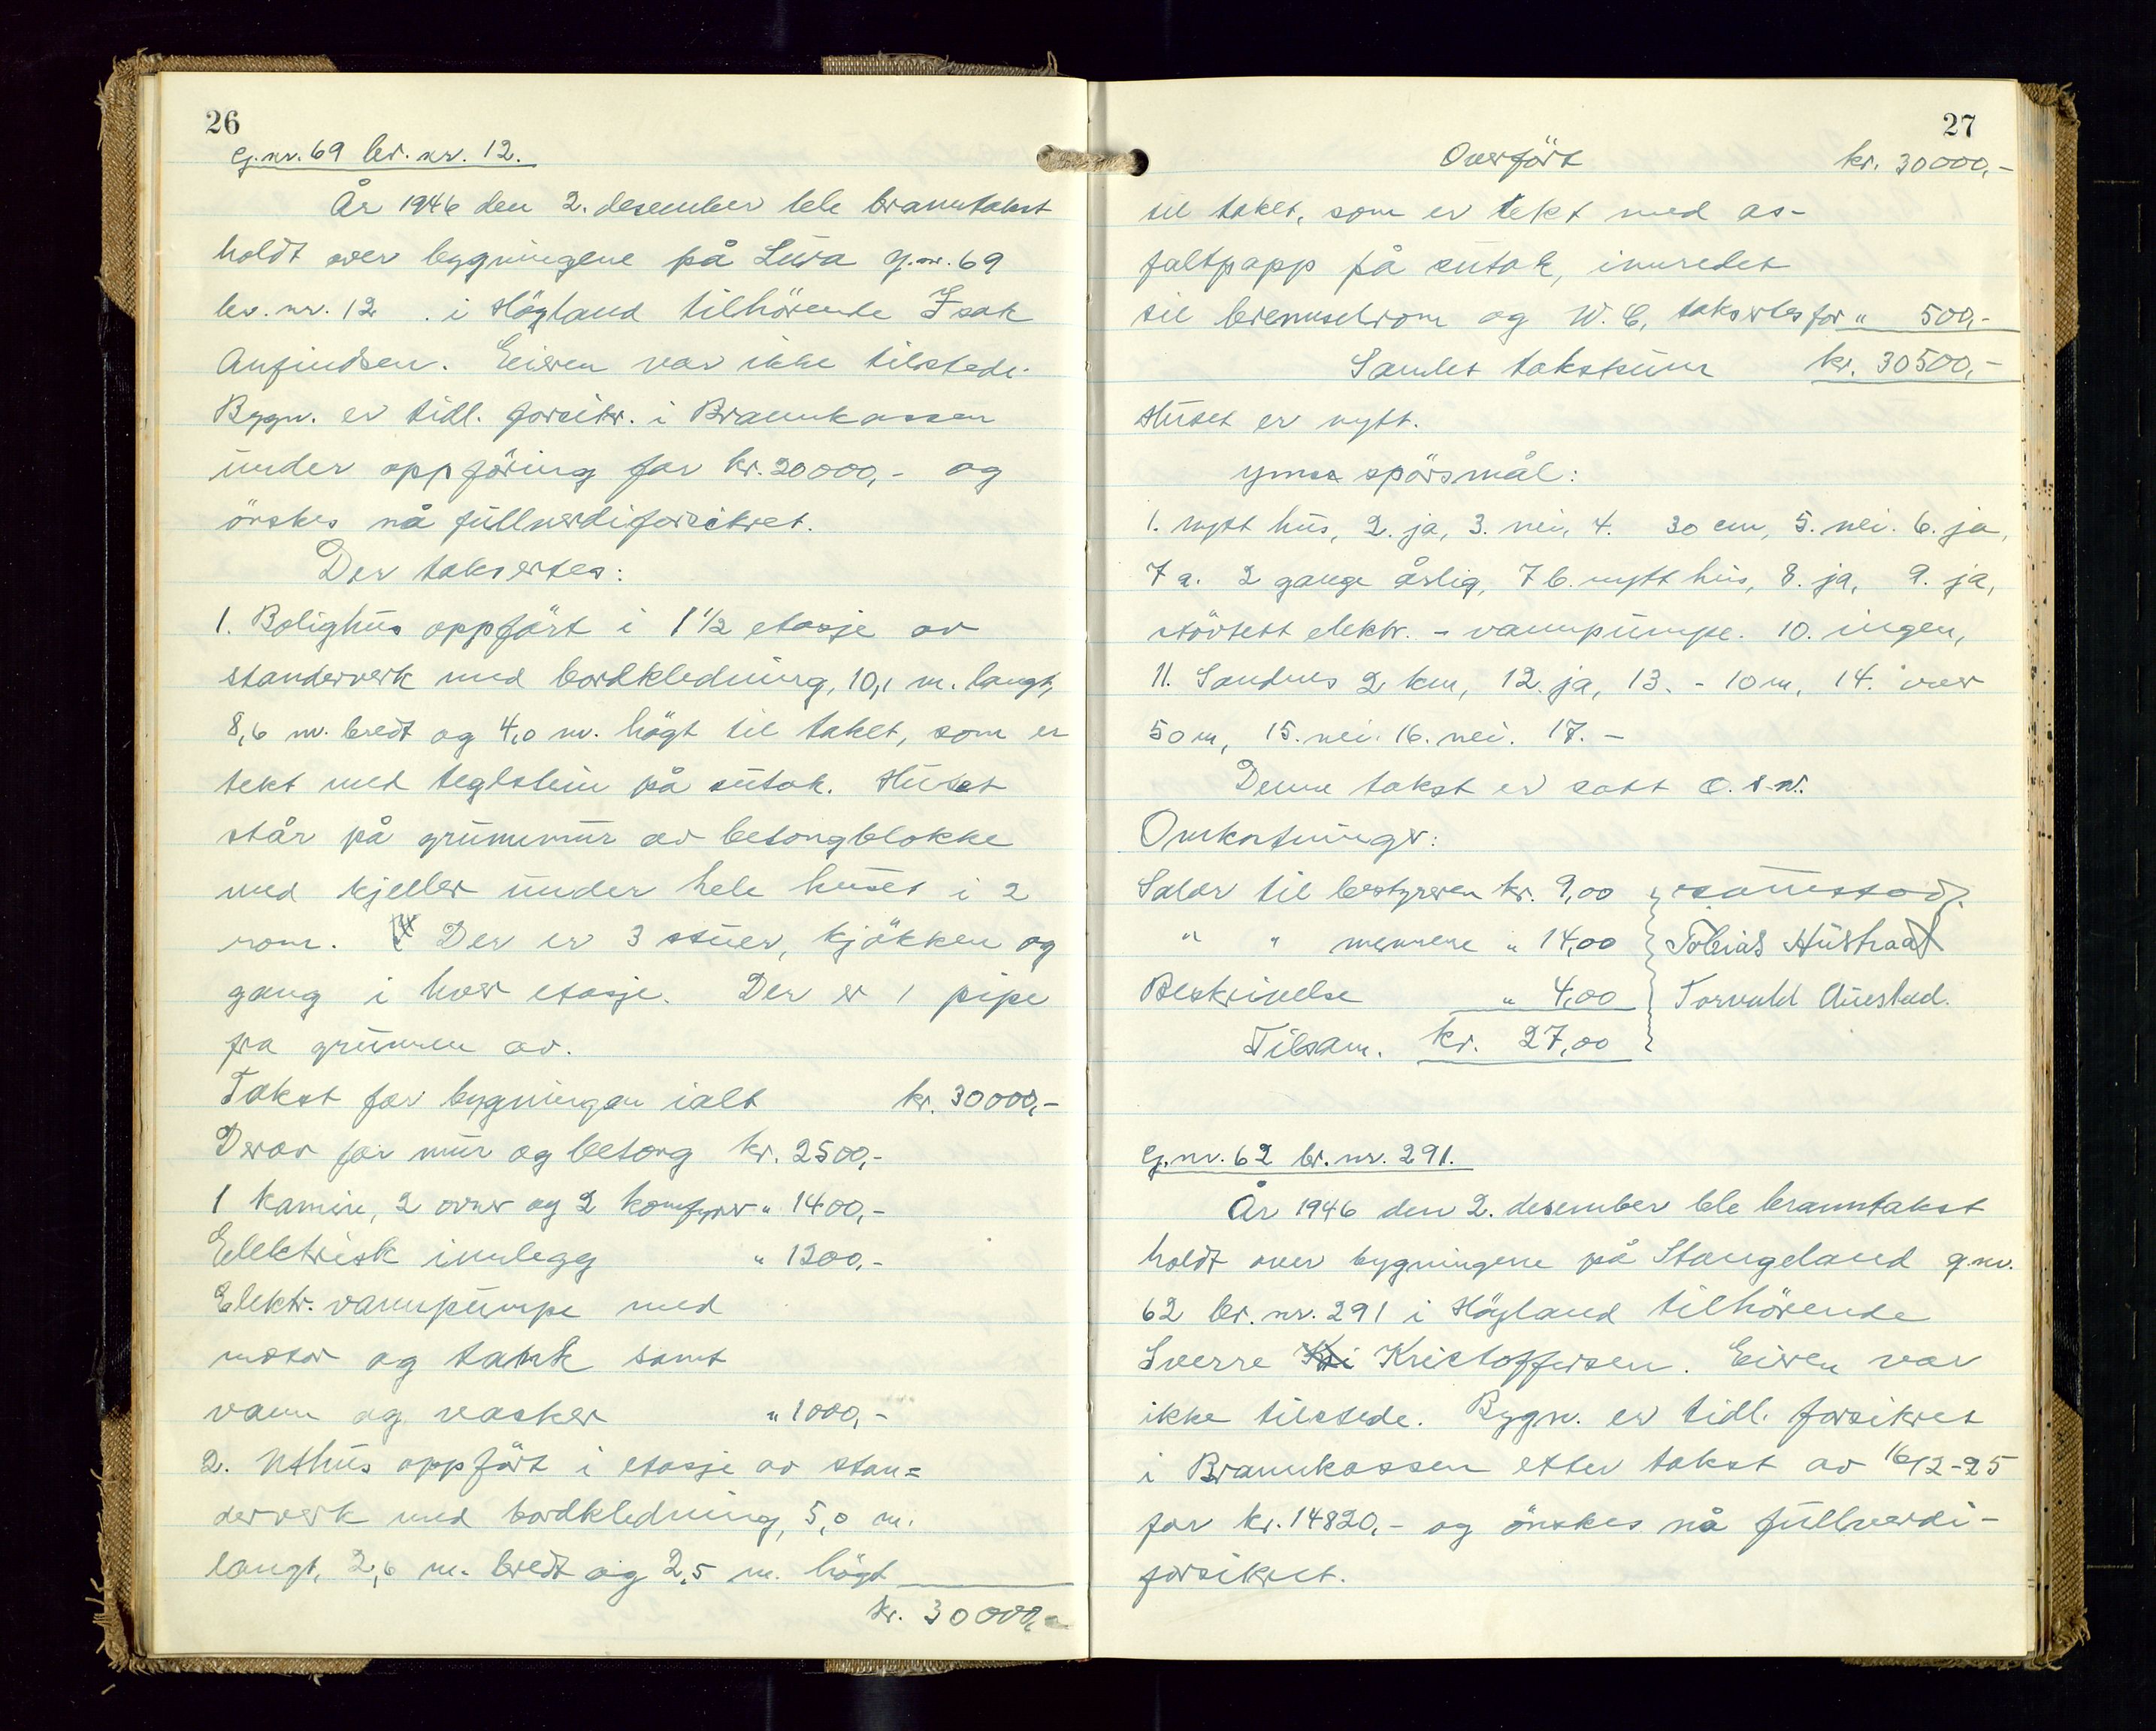 26
G.nr. 69 br. nr. 12.
År 1946 den 2. desember ble branntakst
holdt over bygningene på Lura g.nr. 69
br. nr. 12 . i Högland tilhörende Isak
Anfindsen. Eieren var ikke tilstede.
Bygn. er tidl. forsikr. i Brannkassen
under oppföring for kr. 20000,- og
önskes nå fullverdiforsikret.
Der takseres:
1. Bolighus oppfört i 1 1/2 etasje av
standerverk med bordkledning, 10,1 m. langt,
8,6 m. bredt og 4,0 m. högt til taket, som er
tekt med teglstein på sutak. Huset
står på grunnmur av betongblokke
med kjeller under hele huset i 2
rom. Der er 3 stuer, kjökken og
gang i hver etasje. Der er 1 pipe
fra grunnen av.
Takst for bygningen ialt kr. 30000,-
Derav for mur og betong kr. 2500,-
1 kamin, 2 ovner og 2 komfyrer " 1400,-
Elektrisk innlegg " 1200,-
Elektr. vannpumpe med
motor og tank samt
vann og vasker " 1000,-
2. Uthus oppfört i etasje av stan=
derverk med bordkledning, 5,0 m.
langt, 2,6 m. bredt og 2,5 m. högt
kr. 30000,-
27
Overfört kr. 30000,-
til taket, som er tekt med as-
faltpapp på sutak, innredet
til brenselrom og W.C, takseres for " 500,-
Samlet takstsum kr. 30500,-
Huset er nytt.
ymse spörsmål:
1. nytt hus, 2. ja, 3. nei, 4. 30 cm, 5. nei. 6. ja,
7 a. 2 gange årlig, 7 b. nytt hus, 8. ja, 9. ja,
elektr. - vannpumpe. 10. ingen,
11. Sandnes 2 km, 12. ja, 13. - 10 m, 14. over
50 m, 15. nei. 16. nei. 17. -
Denne takst er satt o.s.v.
Omkostninger:
Salær til bestyreren kr. 9,00
" " mennene " 14,00 Tobias Hustraat
Beskrivelse " 4,00 Torvald Auestad.
Tilsam. kr. 27,00
G.nr. 62 br. nr. 291.
År 1946 den 2. desember ble branntakst
holdt over bygningene på Stangeland g.nr.
62 br. nr. 291 i Högland tilhörende
Sverre Kri Kristoffersen. Eieren var
ikke tilstede. Bygn. er tidl. forsikret
i Brannkassen etter takst av 16/12-25
for kr. 14820,- og önskes nå fullverdi-
forsikret.